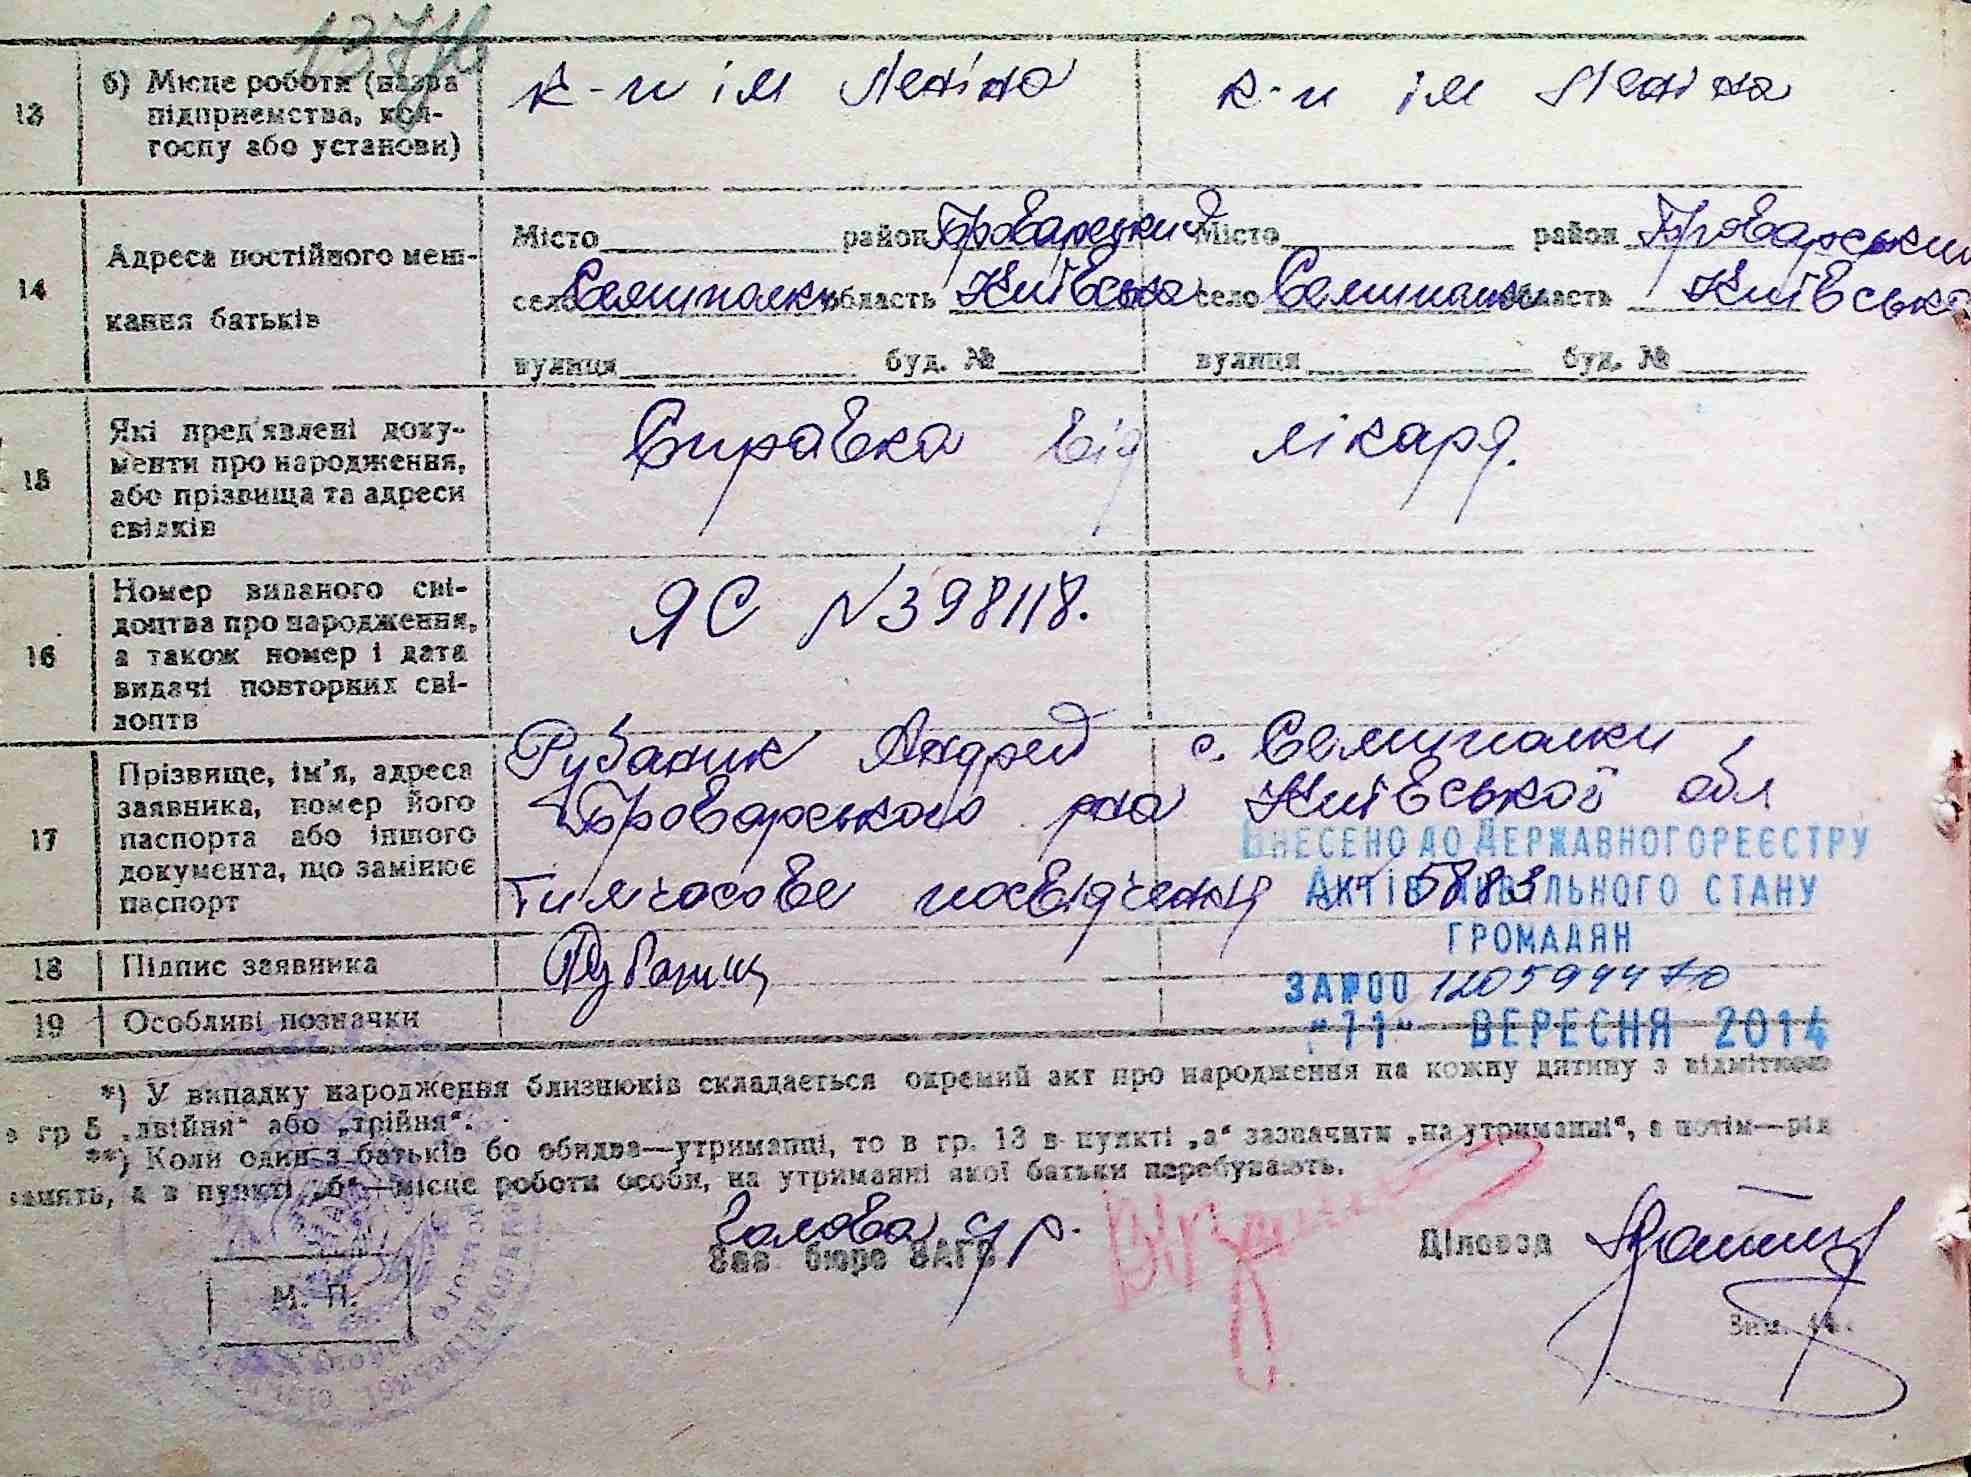 13 б) Місце роботи (назва підприємства, колгоспу або установи) к-п ім Леніна к-п ім Леніна
14 Адреса постійного мешкання батьків
Місто район Броварський Місто район Броварський
село Семиполки область Київська село Семиполки область Київська
вулиця буд. № вулиця буд. №
15 Які пред'явлені документи про народження, або прізвища та адреси свідків Справка від лікаря.
16 Номер виданого свідоцтва про народження, а також номер і дата видачі повторних свідоцтв ЯС №398118.
17 Прізвище, ім'я, адреса заявника, номер його паспорта або іншого документа, що замінює паспорт
Рубаник Андрей с. Семиполки
Броварського р-на Київської обл
Тимчасове посвідчення № 5883
ВНЕСЕНО ДО ДЕРЖАВНОГО РЕЄСТРУ
АКТІВ ЦИВІЛЬНОГО СТАНУ
ГРОМАДЯН
ЗА №00 120594470
"11" ВЕРЕСНЯ 2014
18 Підпис заявника Рубаник
19 Особливі позначки
*) У випадку народження близнюків складається окремий акт про народження на кожну дитину з відміткою
в гр 5 „двійня“ або „трійня“.
**) Коли один з батьків бо обидва—утриманці, то в гр. 13 в пункті „а“ зазначити „на утриманні“, а потім—рід
занять, а в пункті „б“—місце роботи особи, на утриманні якої батьки перебувають.
Голова
Зав бюро ЗАГС
Діловод
М. П.